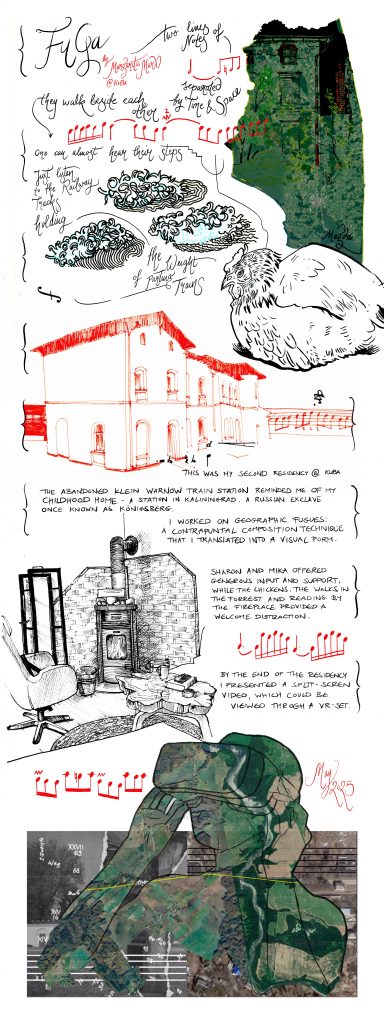 FuGa
by Margarita
@ KuBa
two lines of
Notes
separated
by Time & Space
they walk beside each
other
one can almost hear their steps
Just listen
to the Railway
Tracks
holding
the Weight
of passing
Trains
THIS WAS MY SECOND RESIDENCY @ KUBA
THE ABANDONED KLEIN WARNOW TRAIN STATION REMINDED ME OF MY
CHILDHOOD HOME - A STATION IN KALININGRAD, A RUSSIAN EXCLAVE
ONCE KNOWN AS KÖNIGSBERG.
I WORKED ON GEOGRAPHIC FUGUES:
A CONTRAPUNTAL COMPOSITION TECHNIQUE
THAT I TRANSLATED INTO A VISUAL FORM.
SHARON AND MIKA OFFERED
GENEROUS INPUT AND SUPPORT,
WHILE THE CHICKENS, THE WALKS IN
THE FORREST AND READING BY
THE FIREPLACE PROVIDED A
WELCOME DISTRACTION.
BY THE END OF THE RESIDENCY
I PRESENTED A SPLIT-SCREEN
VIDEO, WHICH COULD BE
VIEWED THROGH A VR-SET.
May
2025
XXVIII
63
Weg